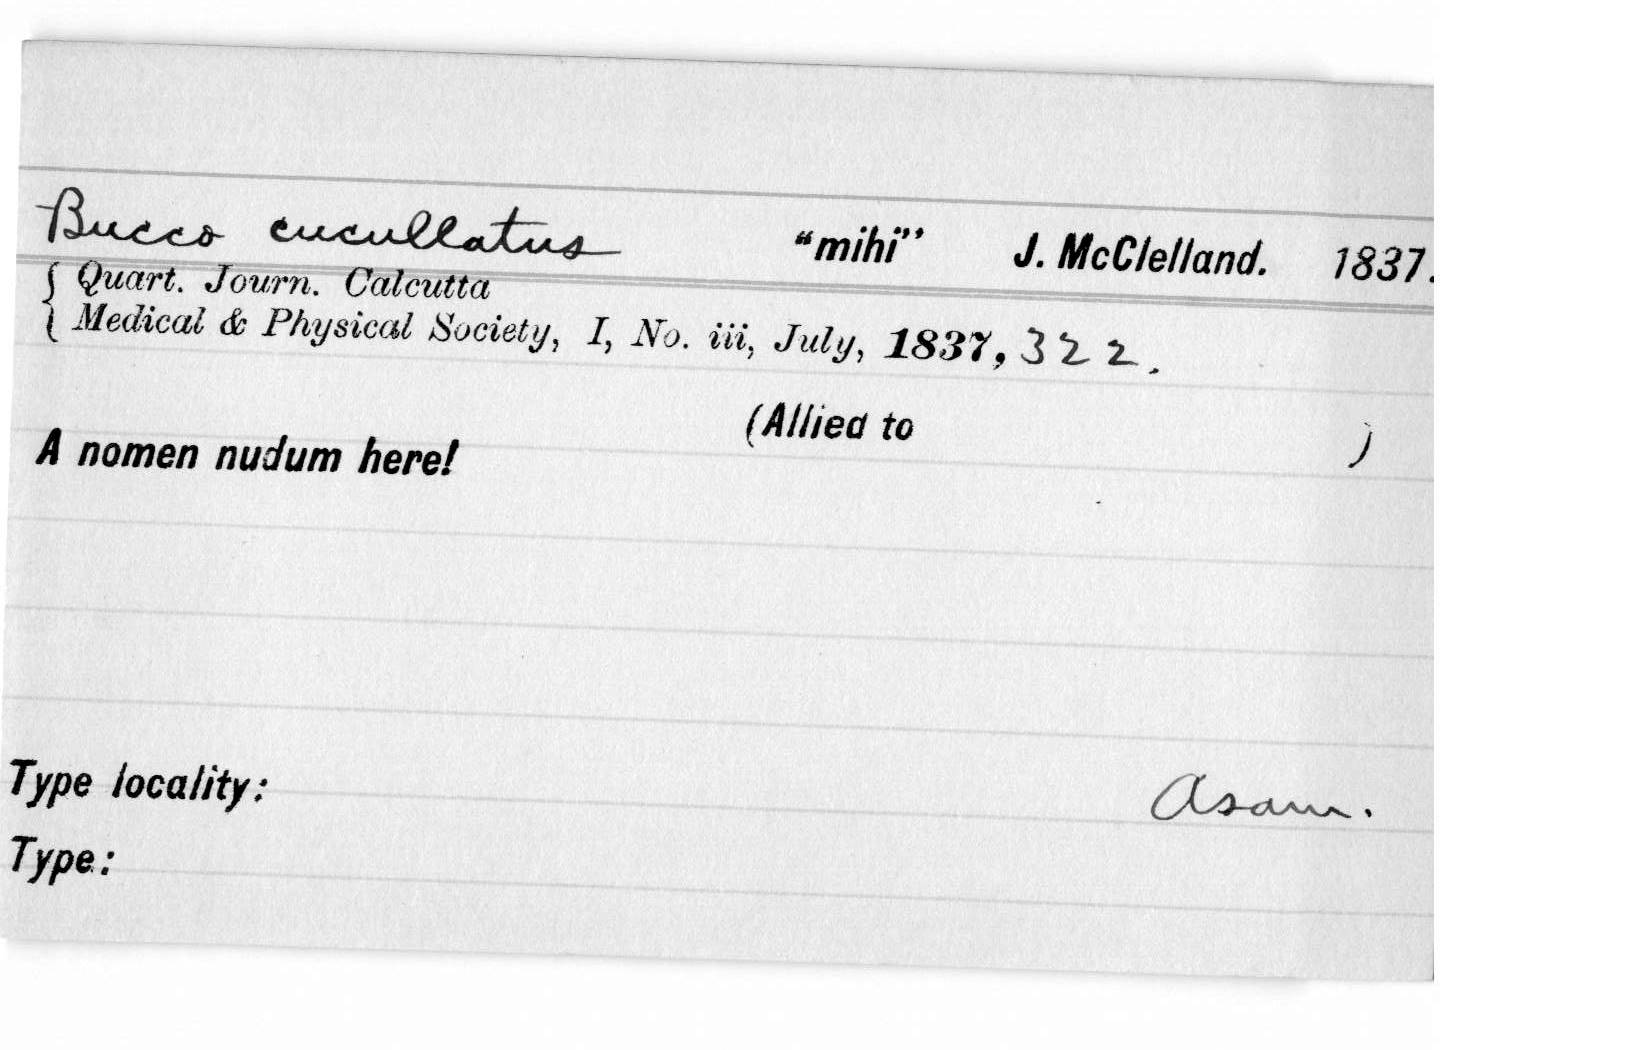 Bucco cucullatus "mihi" J. McClelland. 1837.
{ Quart. Journ. Calcutta
{ Medical & Physical Society, I, No. iii, July, 1837, 322.
(Allied to )
A nomen nudum here!
Type locality: Asam.
Type: